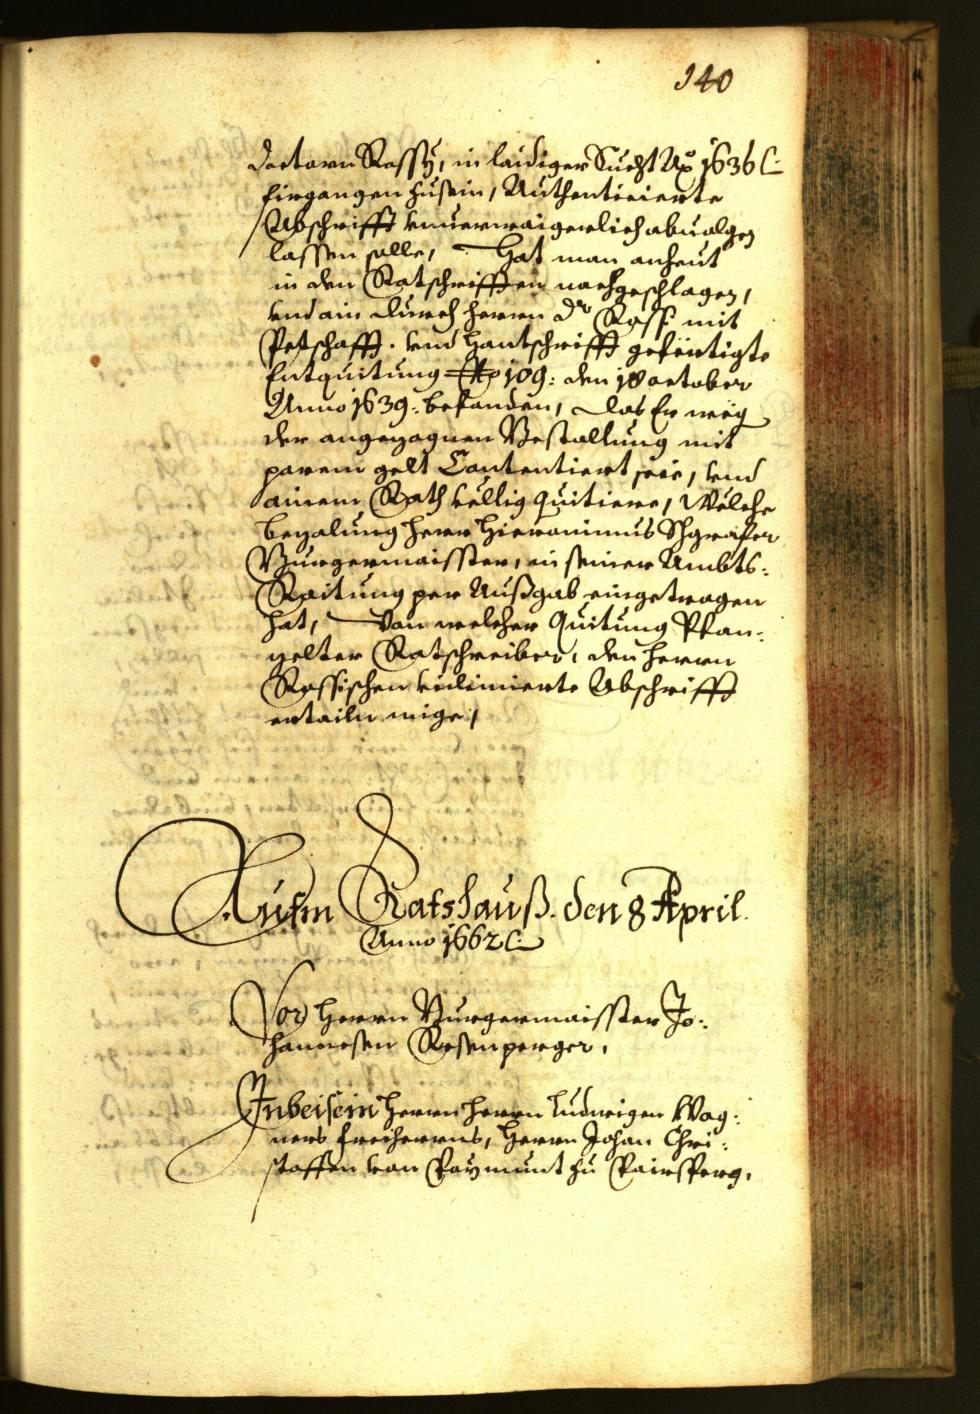 140
doctorn Rossy, in laidiger Sucht Aō 1636 [:
firgangen zusein, Authenticierte
Abschrifft vnuerwaigerlich abuolgen
lassen solle, Hat man anheut
in den Ratschrifften nachgeschlagen,
vnd ain durch herrn Dr Rossi mit
Petschafft. vnd Hantschrifft gefertigte
Entquitung 109: den 18 october
Anno 1639: befunden, das Er weg
der angezognen Bestallung mit
parem gelt Contentiert seie, vnd
ainem Rath vellig quitiere, Welche
bezalung herr Hieronimus Schgrafer
Burgermaisster, in seiner Ambts:
Raitung per Außgab eingetragen
hat, Von welcher Quitung
gelter Ratschreiber, den herrn
Rossischen vidimierte Abschrifft
ertailn mige,
Aufm Ratshauß. den 8 April.
Anno 1662 [:
Vor Herrn Burgermaisster Jo:
hannesen Rosenperger,
Inbeisein Herrn herrn Ludwigen Wag:
ners freiherrns, Herrn Johan Chri:
stoffen von Paymunt zu Pairsperg,